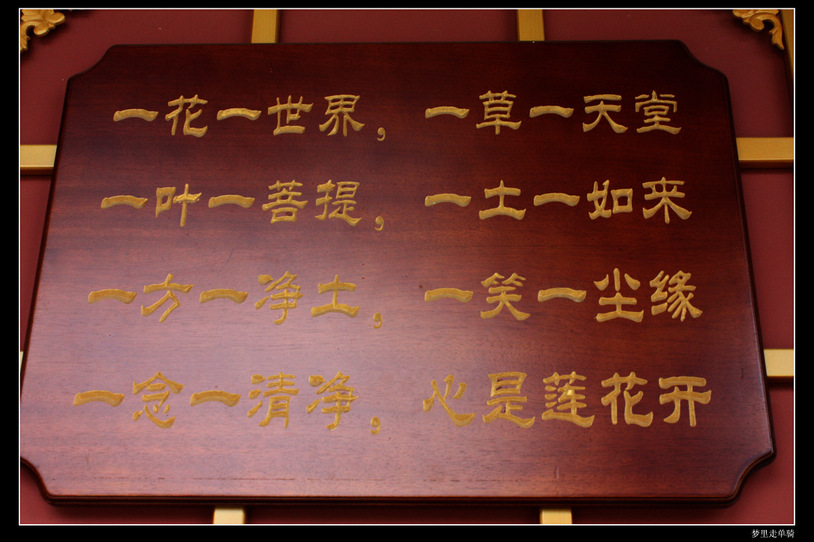 一花一世界，一草一天堂
一叶一菩提，一土一如来
一方一净土，一笑一尘缘
一念一清净，心是莲花开
梦里走单骑